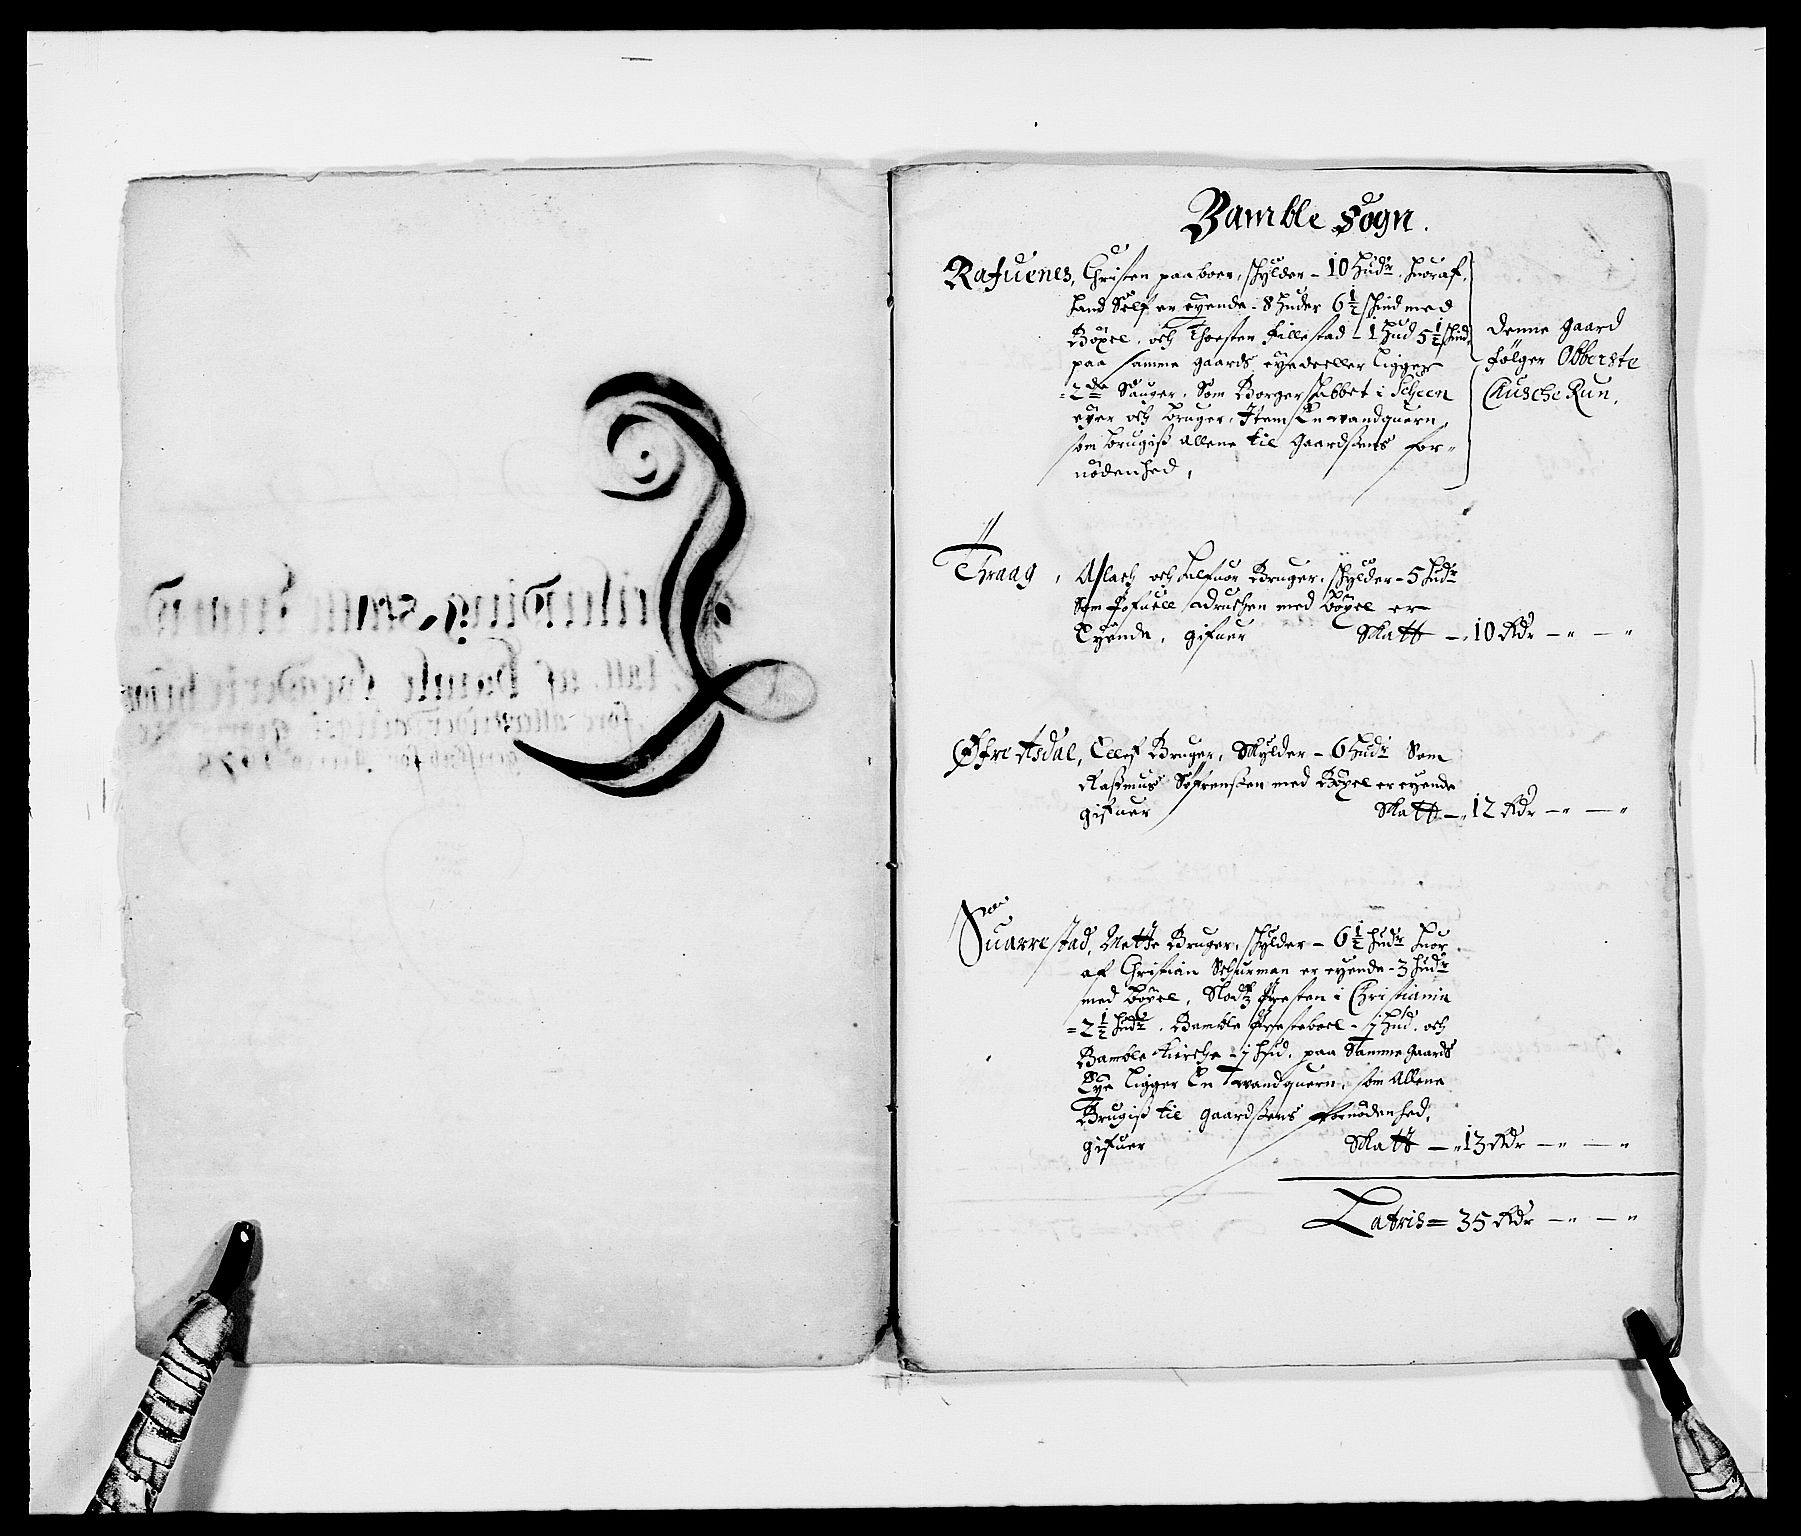 Bamble Sogn.
Rafuenes, Christen paaboer, schylder - 10 Hudr, huoraf
hand Self er eyende - 8 huder 6½ schind med
Böxel, och Thorsten Fillestad - 1 Hud 5½ schind,
paa samme gaards eyedeeller Ligger
= 2de Sauger, Som Borgerskabbet i Scheen
eyer och bruger, Item En wandquern,
som brugiß allene til Gaardsens for-
nödenhed,
denne gaard
fölger Obberste
Causche Run.
Thraag, Aslach och Halfuor Bruger, schylder - 5 hudr
Som Pofuell adruchen med böxel er
Eyende, gifuer Skatt - 10 Rdr - " - "
Øfre Asdal, Ellef Bruger, Skylder - 6 Hudr Som
Rasmus Söfrensen med Böxel er eyende
gifuer Skatt - 12 Rdr - " - "
Suarrestad, Mette Bruger, schylder - 6½ hudr huor
af Christian Schurman er eyende - 3 hudr
med böxel, Slodtz Presten i Christiania
= 2½ hudr, Bamble Presteboel - 1 hud, och
Bamble Kierche - 1 hud, paa Samme Gaards
Eye Ligger En wandquern, som Allene
Brugiß til gaardsens fornödenhed,
gifuer Skatt - 13 Rdr - " - "
Latris = 35 Rdr - " - "